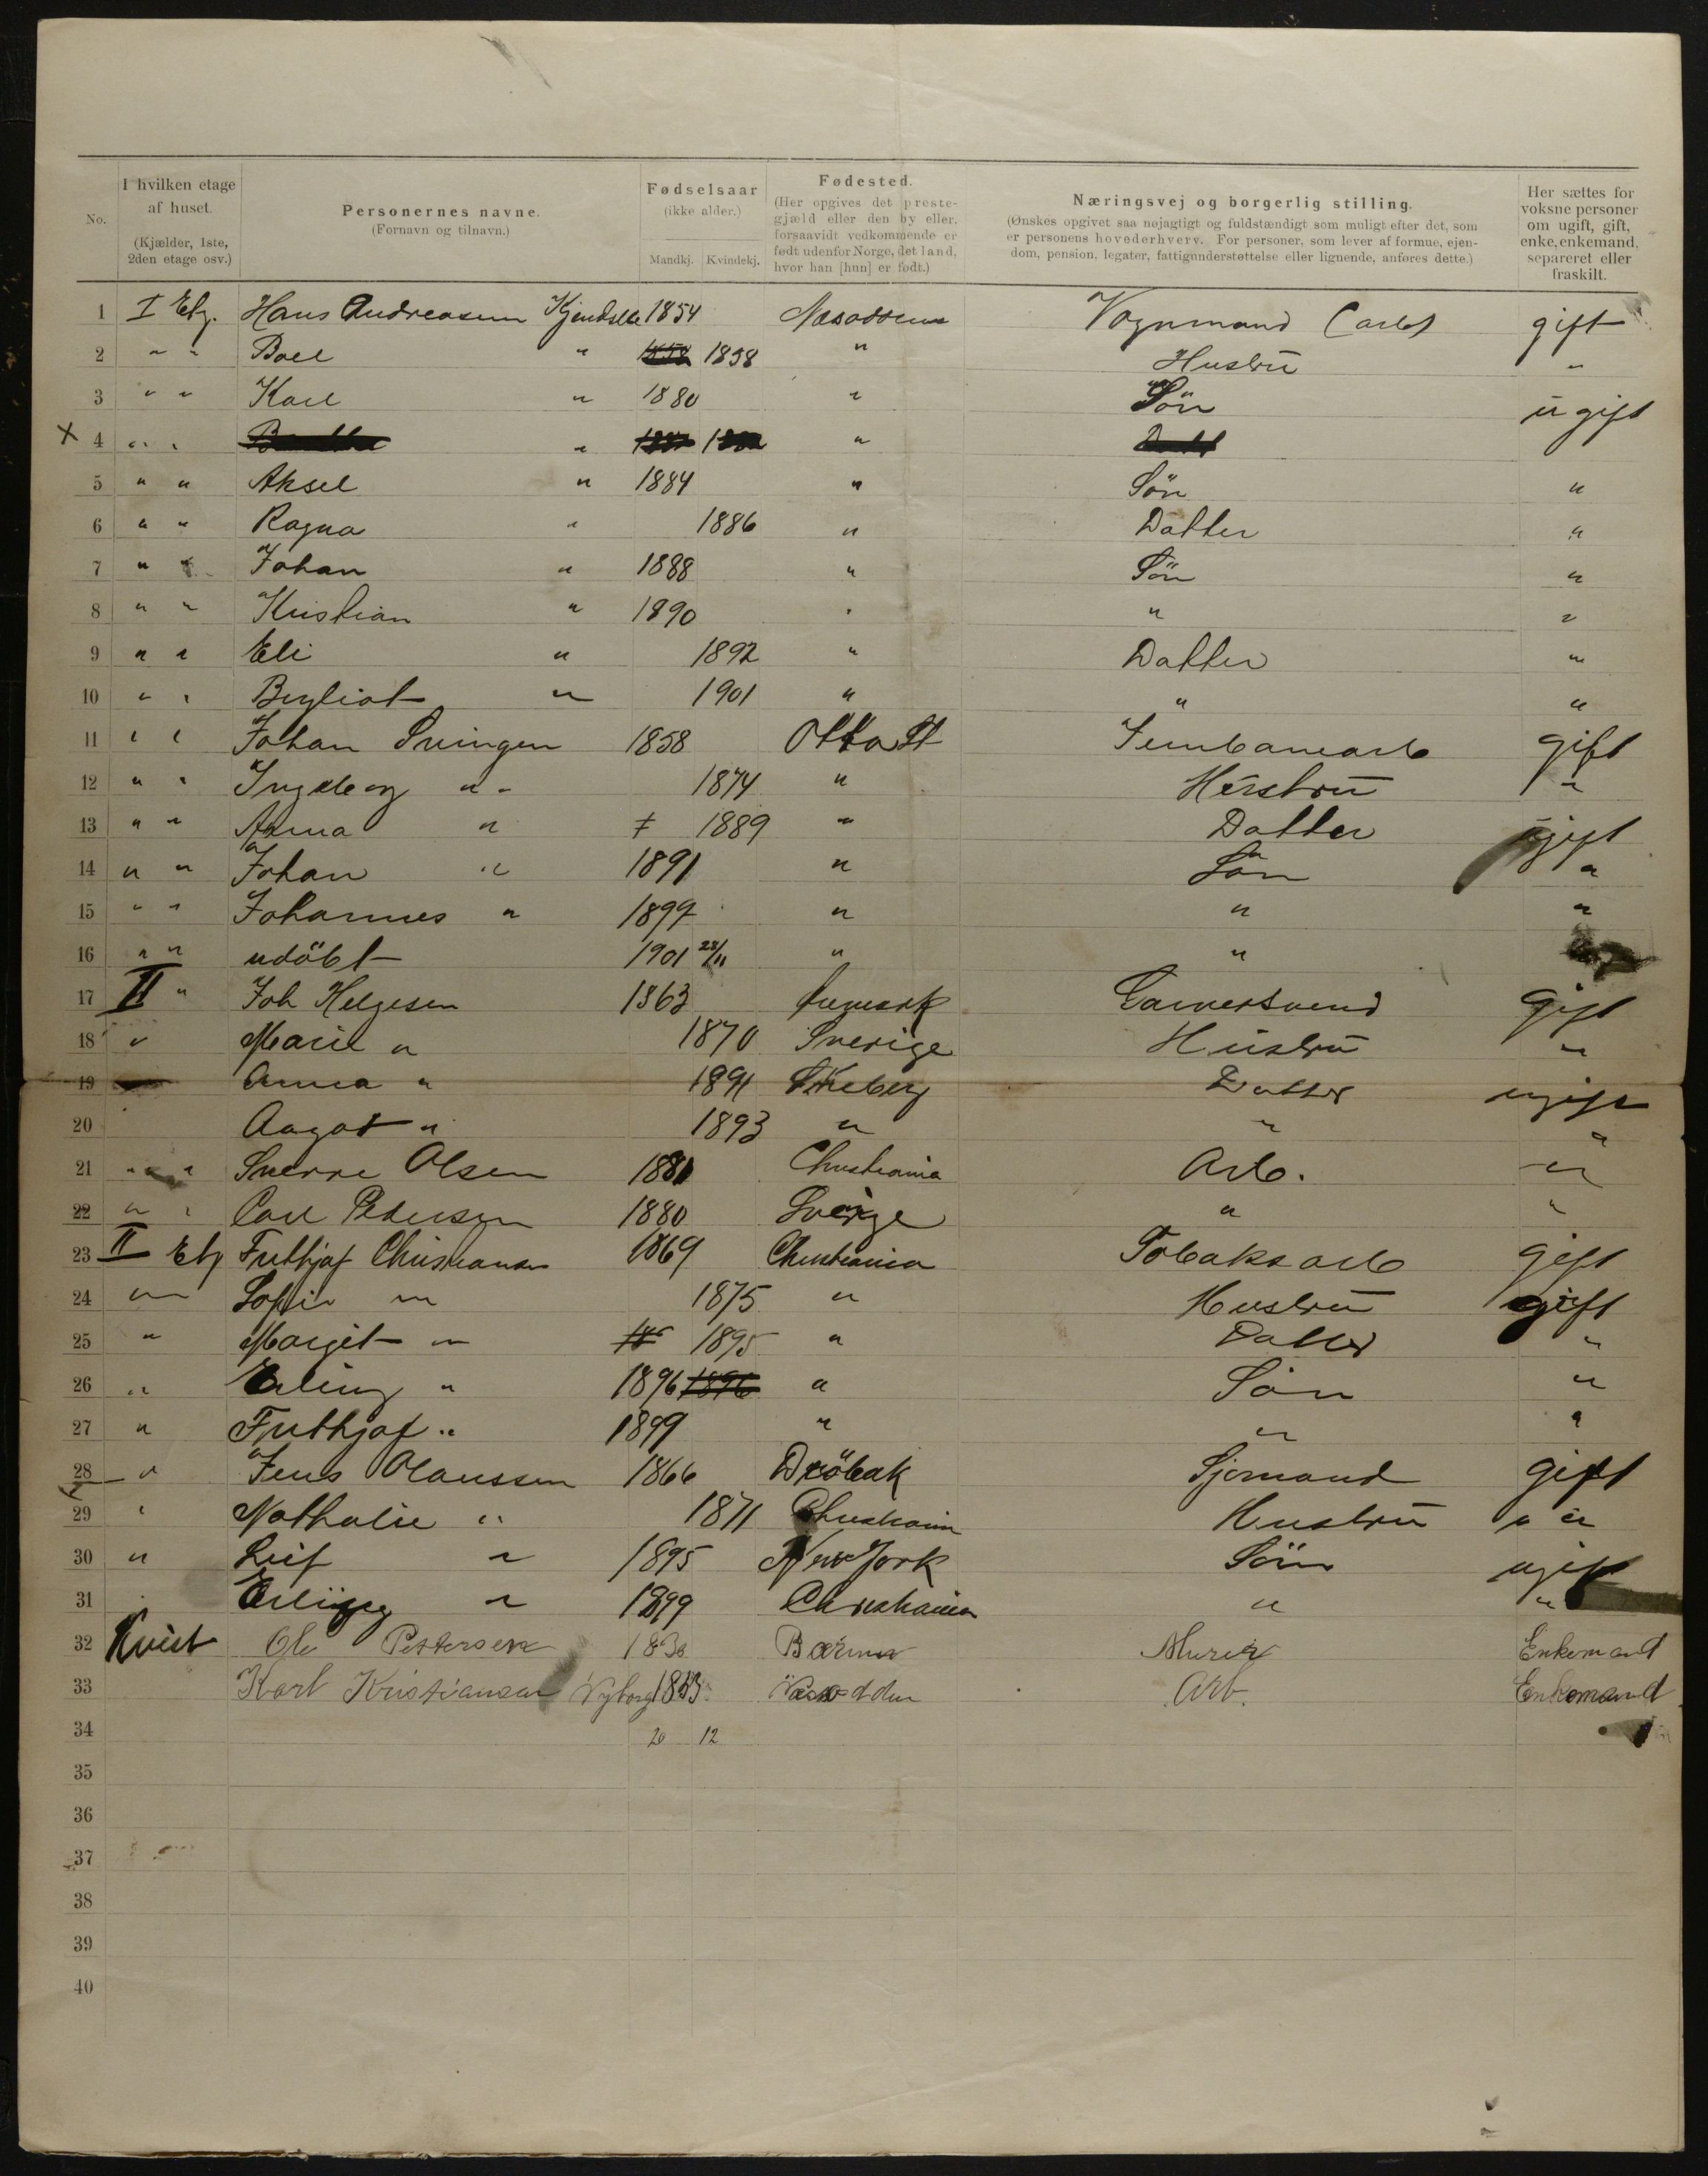 No. I hvilken etage af huset. (Kjælder, 1ste, 2den etage osv.) Personernes navne. (Fornavn og tilnavn.) Fødselsaar (ikke alder.) Mandkj. Kvindekj. Fødested. (Her opgives det prestegjæld eller den by eller, forsaavidt vedkommende er født udenfor Norge, det land, hvor han [hun] er født.) Næringsvej og borgerlig stilling. (Ønskes opgivet saa nøjagtigt og fuldstændigt som muligt efter det, som er personens hovederhverv. For personer, som lever af formue, ejendom, pension, legater, fattigunderstøttelse eller lignende, anføres dette.) Her sættes for voksne personer om ugift, gift, enke, enkemand, separeret eller fraskilt.
1 I Etg. Hans Andreasen 1854 Vognmand gift
2 " " " 1858 " Hustrü "
3 " " Karl " 1880 " Sön ügift
X 4 " " " "
5 " " Aksel " 1884 " Sön "
6 " " Ragna " 1886 " Datter "
7 " " Johan " 1888 " Sön "
8 " " Kristian " 1890 " " "
9 " " Eli " 1892 " Datter "
10 " " Bergliot " 1901 " " "
11 " " Johan Svingen 1858 Otta St Jernbanearb gift
12 " " Ingeborg " 1874 " Hüstrü "
13 " " Anna " 1889 " Datter ügift
14 " " Johan " 1891 " Sön "
15 " " Johannes " 1897 " " "
16 " " udöbt 1901 28/11 " "
17 II " Joh Helgesen 1863 Garversvend gift
18 " Marie " 1870 Sverige Hüstrü "
19 Anna " 1891 Datter ugift
20 Aagot " 1893 " " "
21 " " Sverre Olsen 1881 Christiania Arb. "
22 " " Carl Pedersen 1880 Sverige " "
23 II Etg Frithjof Christiansen 1869 Christiania Tobaksarb gift
24 " Sofie " 1875 " Hustrü gift
25 " Margit " 1895 " Datter "
26 " Erling " 1896 1896 " Sön "
27 " Frithjof " 1899 " " "
28 " Jens Olaussen 1866 Dröbak Sjømand gift
29 " Nathalie " 1871 Christiania Hustrü " "
30 " Leif " 1895 New York Sön ugift
31 Erling " 1899 Christiania " "
32 Kvist Ole Pettersen 1830 Bærum Murer Enkemand
33 Karl Kristiansen Nyborg Arb. Enkemand
34 20 12
35
36
37
38
39
40